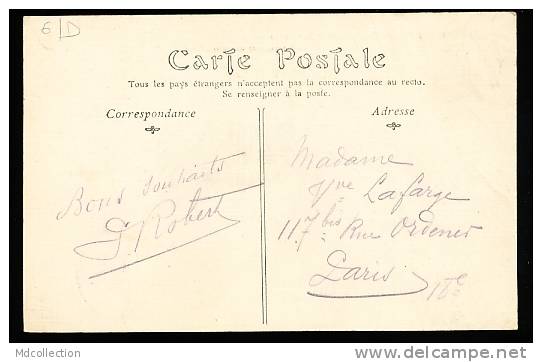 6/D
Carte Postale
Tous les pays étrangers n'acceptent pas la correspondance au recto.
Se renseigner à la poste.
Correspondance
Adresse
Bons souhaits
G. Robert
Madame
Vve Lafarge
117 bis Rue Ordener
Paris
Mdcollection
www.delcampe.net